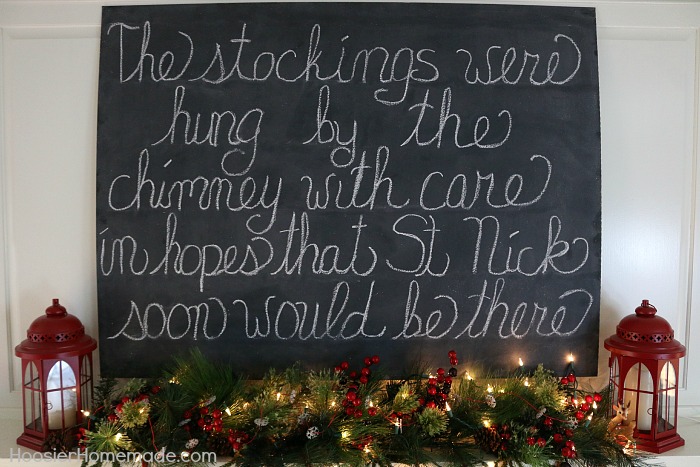 The stockings were
hung by the
chimney with care
in hopes that St Nick
soon would be there
HoosierHomemade.com